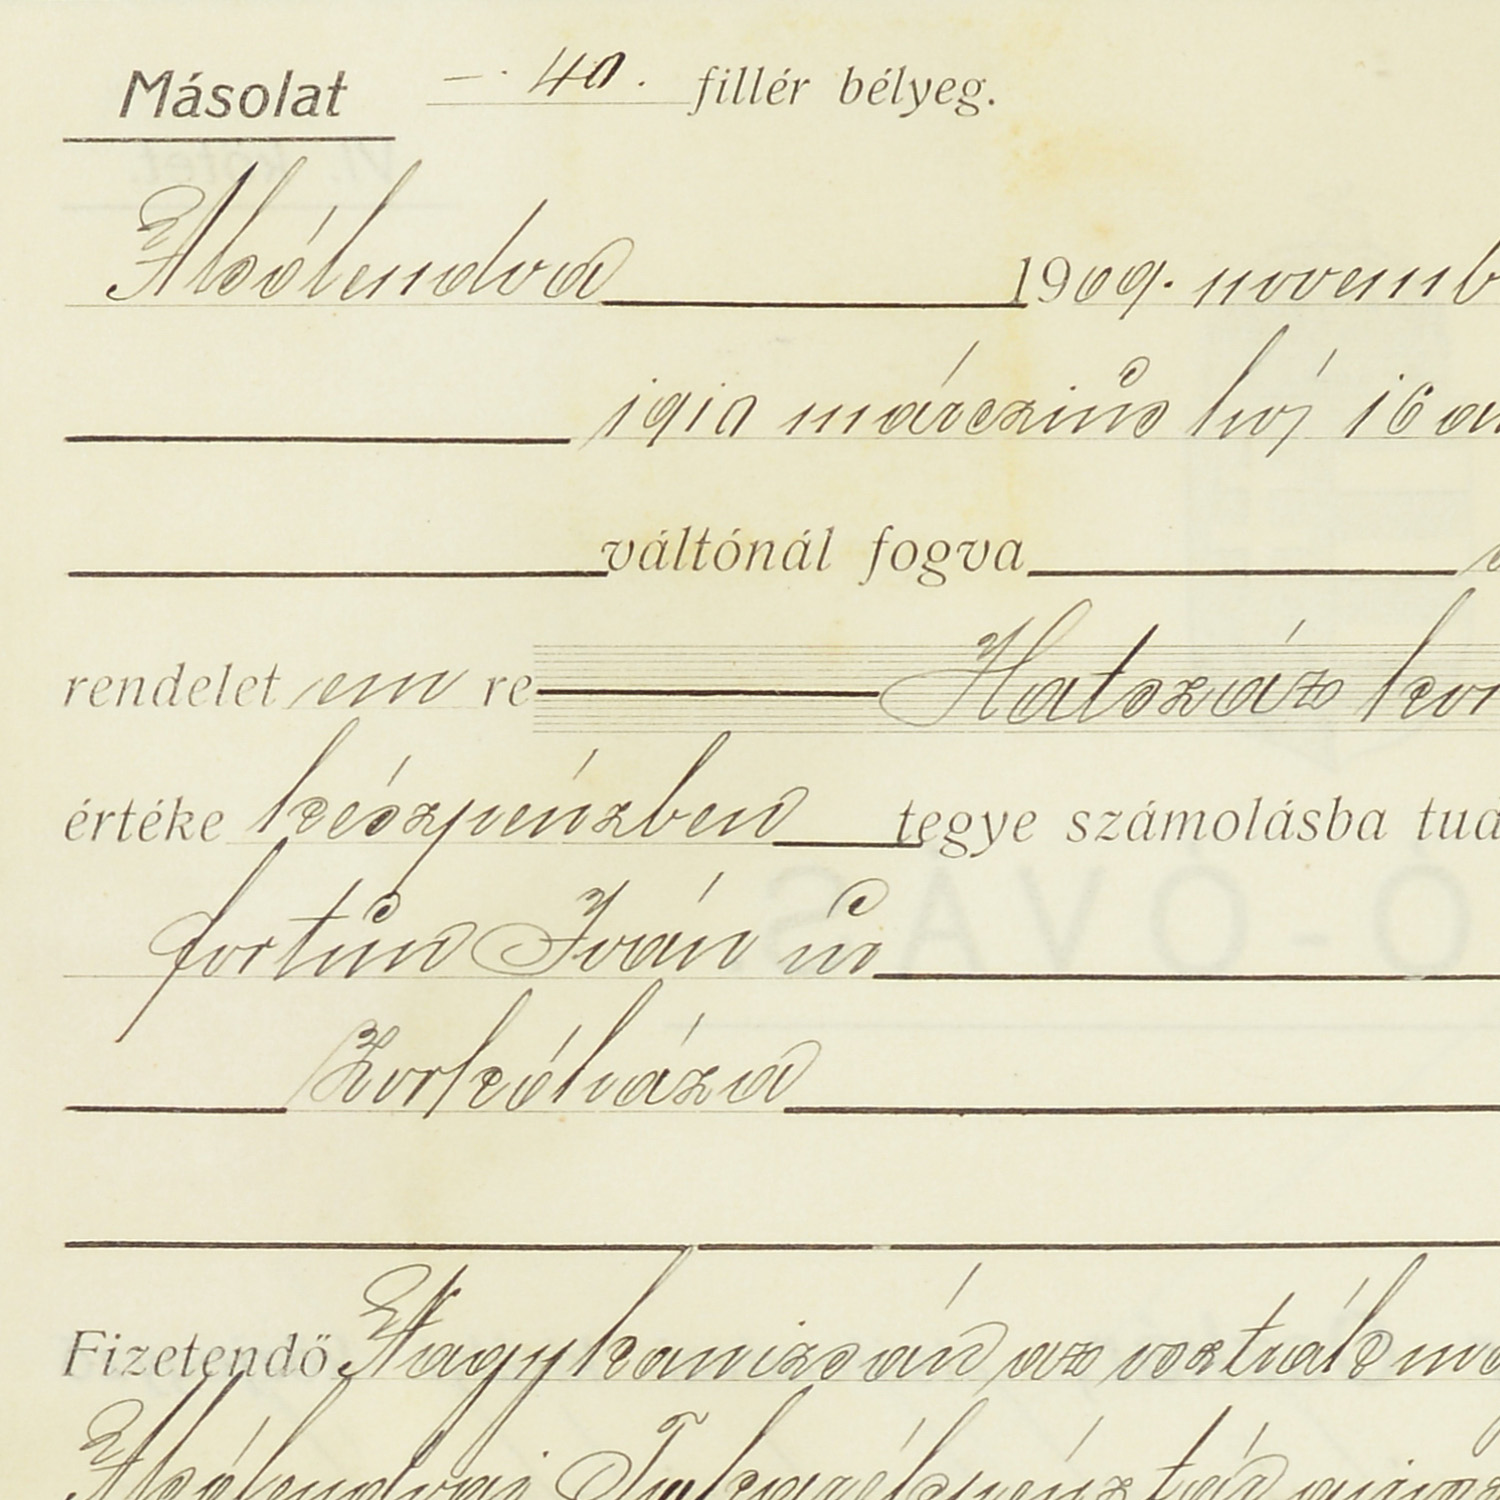 Másolat —. 40. fillér bélyeg.
Alsólendva 1909. novemb
1910 márczius hó 16 an
váltónál fogva
rendelet em re Hatszáz kor
értéke készpénzben tegye számolásba tud
fortun Iván úr
Zorkóháza
Fizetendő Nagykanizsán az osztrák ma
Alsólendvai Takarékpénztár